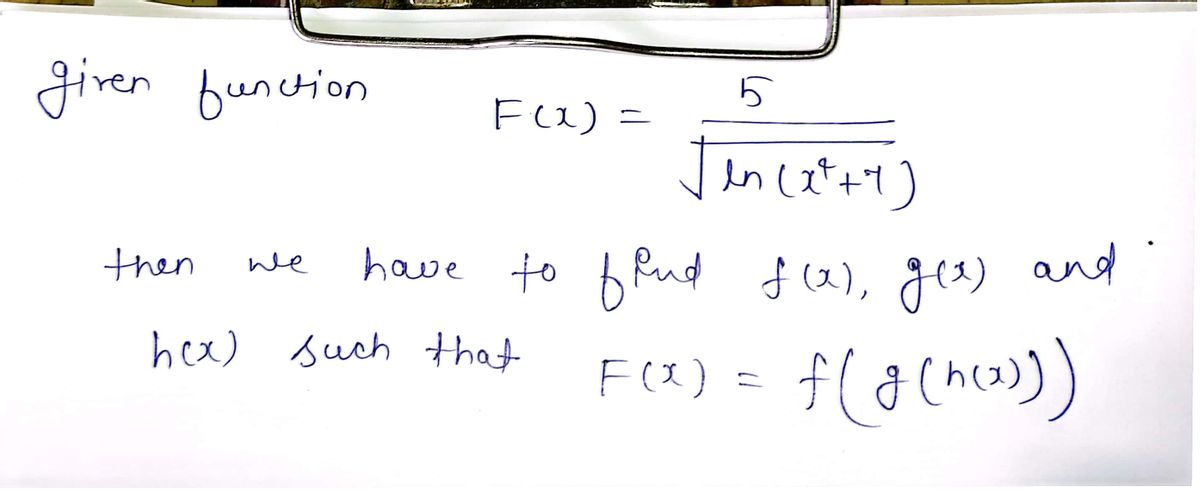 given function F(x) = 5 / √ln(x⁴+7)
then we have to find f(x), g(x) and
h(x) such that F(x) = f(g(h(x)))